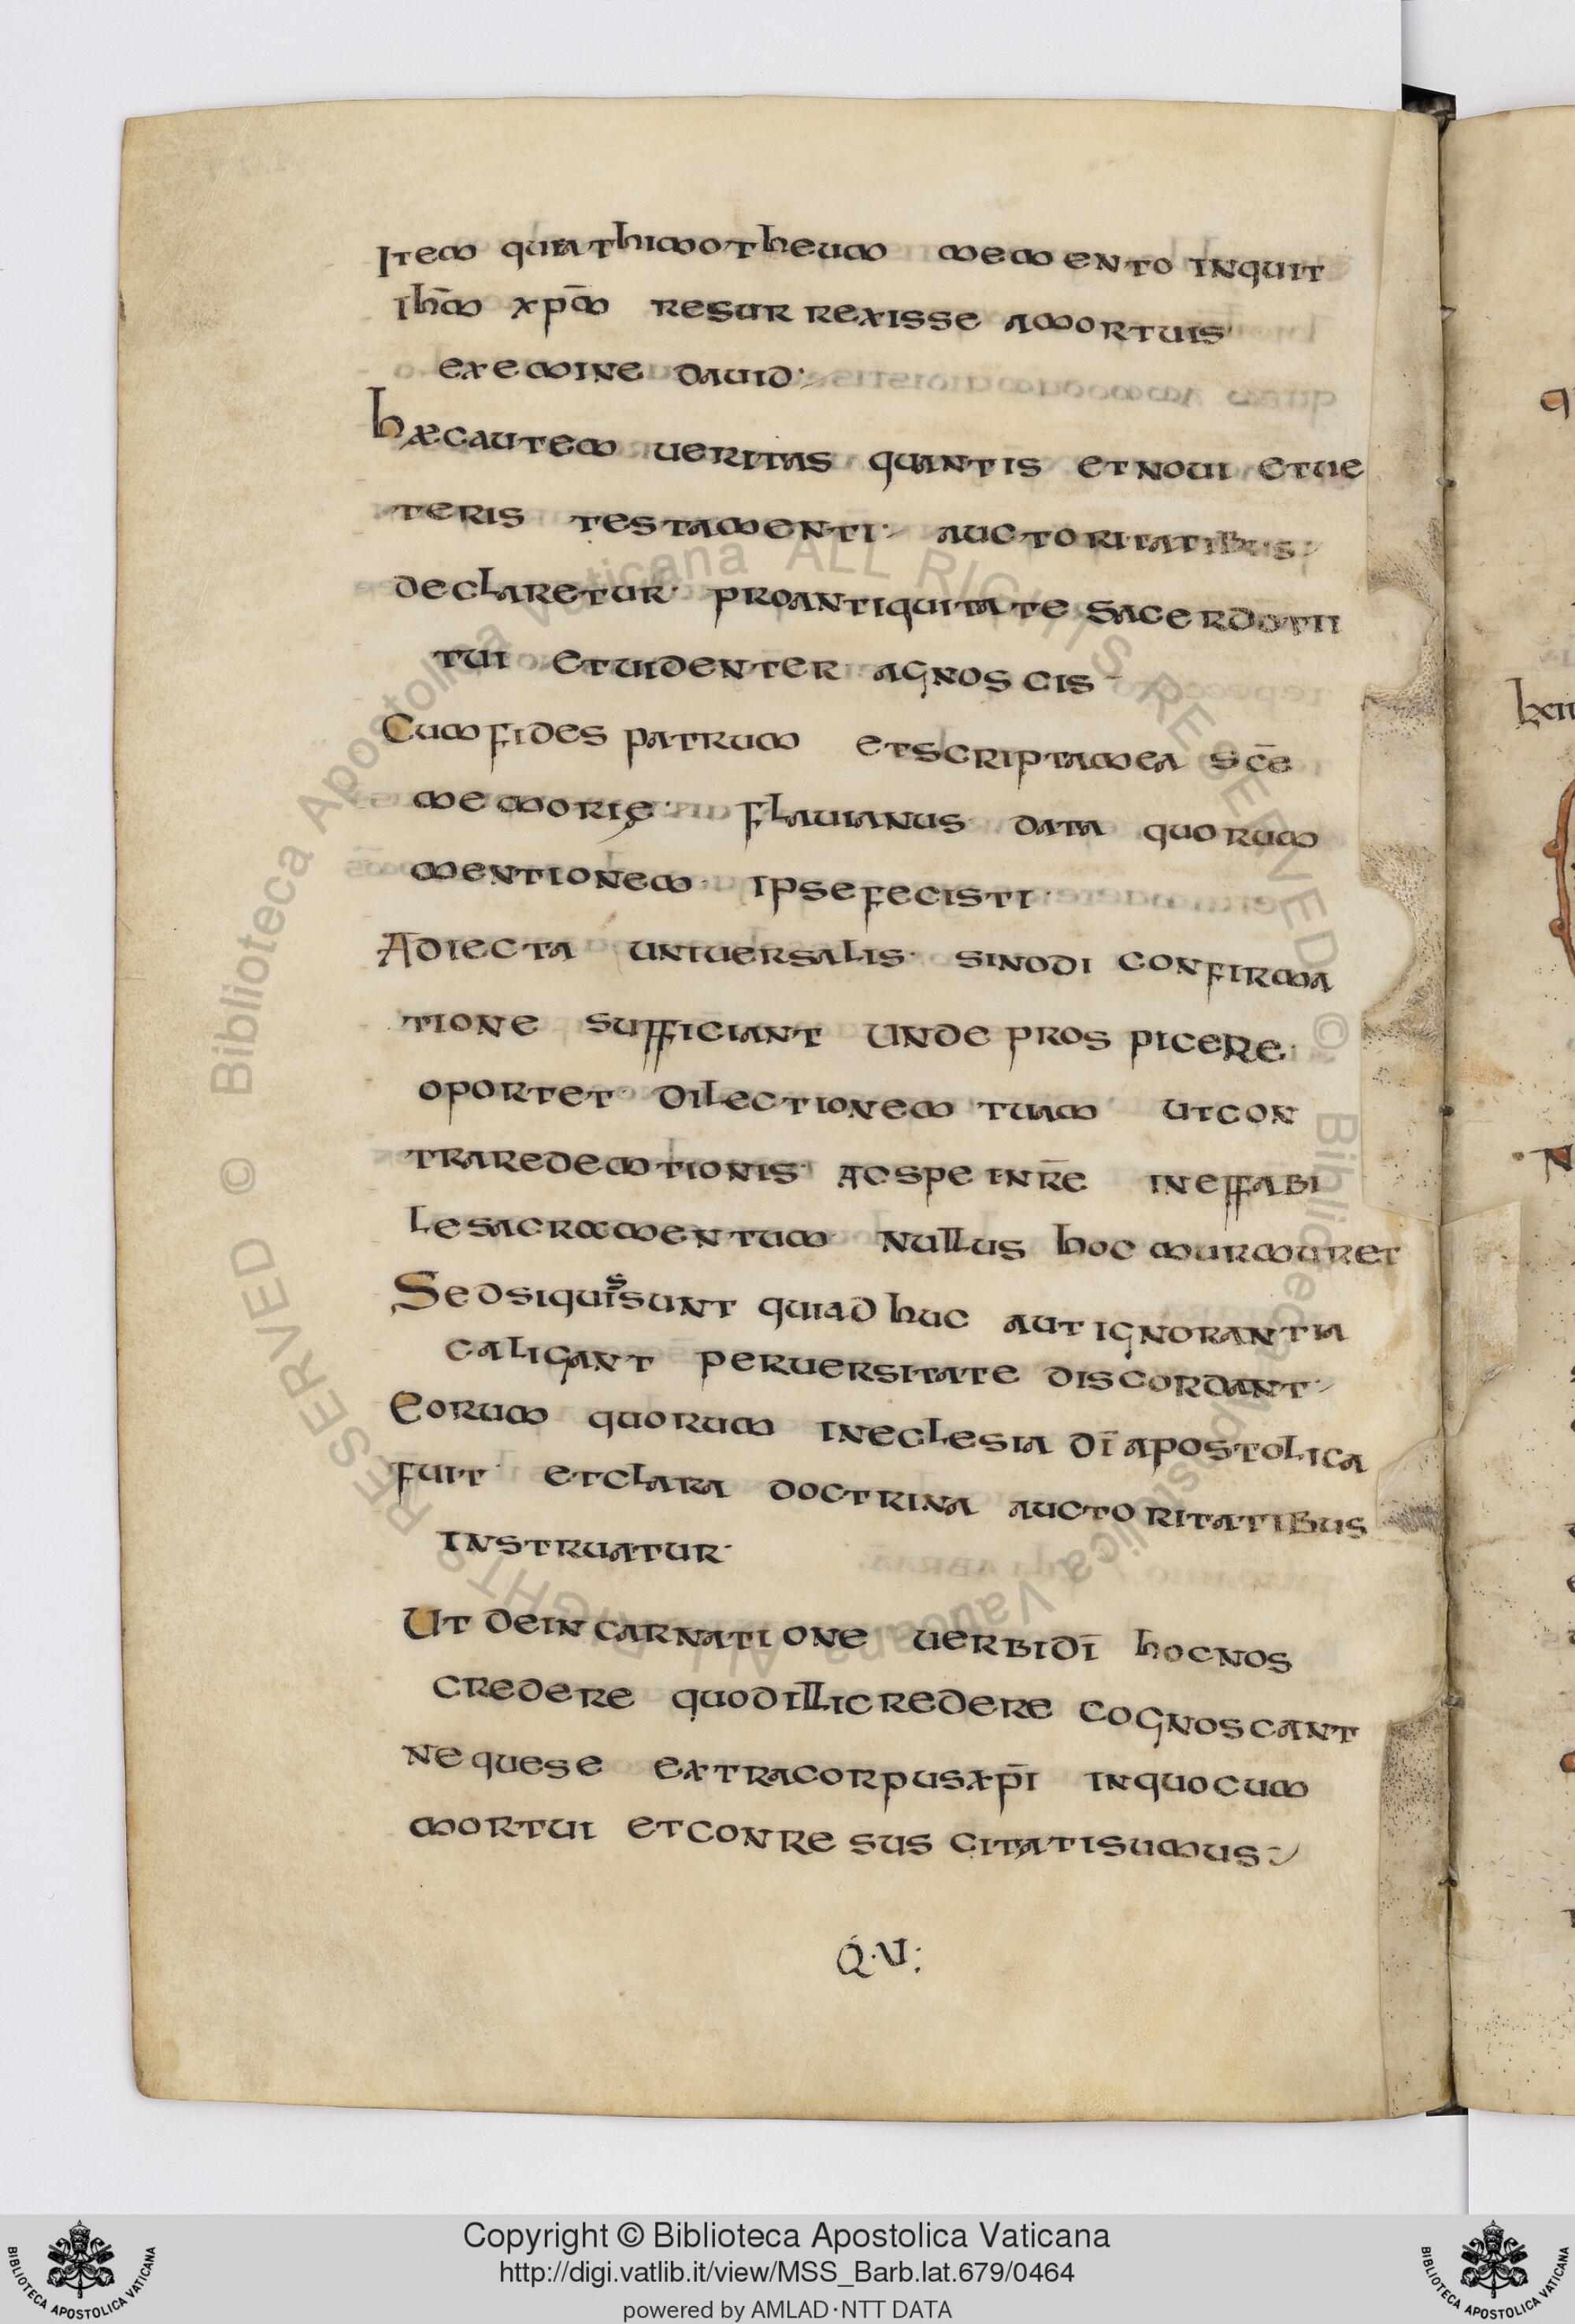 Item quiathimotheum memento inquit
ihm̄ xpm̄ resurrexisse amortuis
exemine dauid
hæcautem ueritas quantis etnoui etue
teris testamenti auctoritatibus
declaretur proantiquitate sacerdotii
tui etuidenter agnoscis
Cumfides patrum etscriptamea sc̄e
memorię flauianus data quorum
mentionem ipsefecisti
Adiecta uniuersalis sinodi confirma
tione sufficiant unde prospicere
oportet dilectionem tuam utcon
traredemtionis acspe inr̄e ineffabi
lesacramentum nullus hoc murmuret
Sedsiquissunt quiadhuc aut ignorantia
caligant peruersitate discordant
Eorum quorum ineclesia dī apostolica
fuit etclara doctrina auctoritatibus
instruatur
Ut deincarnatione uerbidī hocnos
credere quodillicredere cognoscant
nequese extracorpusxp̄i inquocum
mortui etconresuscitatisumus
Q·V:
Copyright © Biblioteca Apostolica Vaticana
http://digi.vatlib.it/view/MSS_Barb.lat.679/0464
powered by AMLAD·NTT DATA